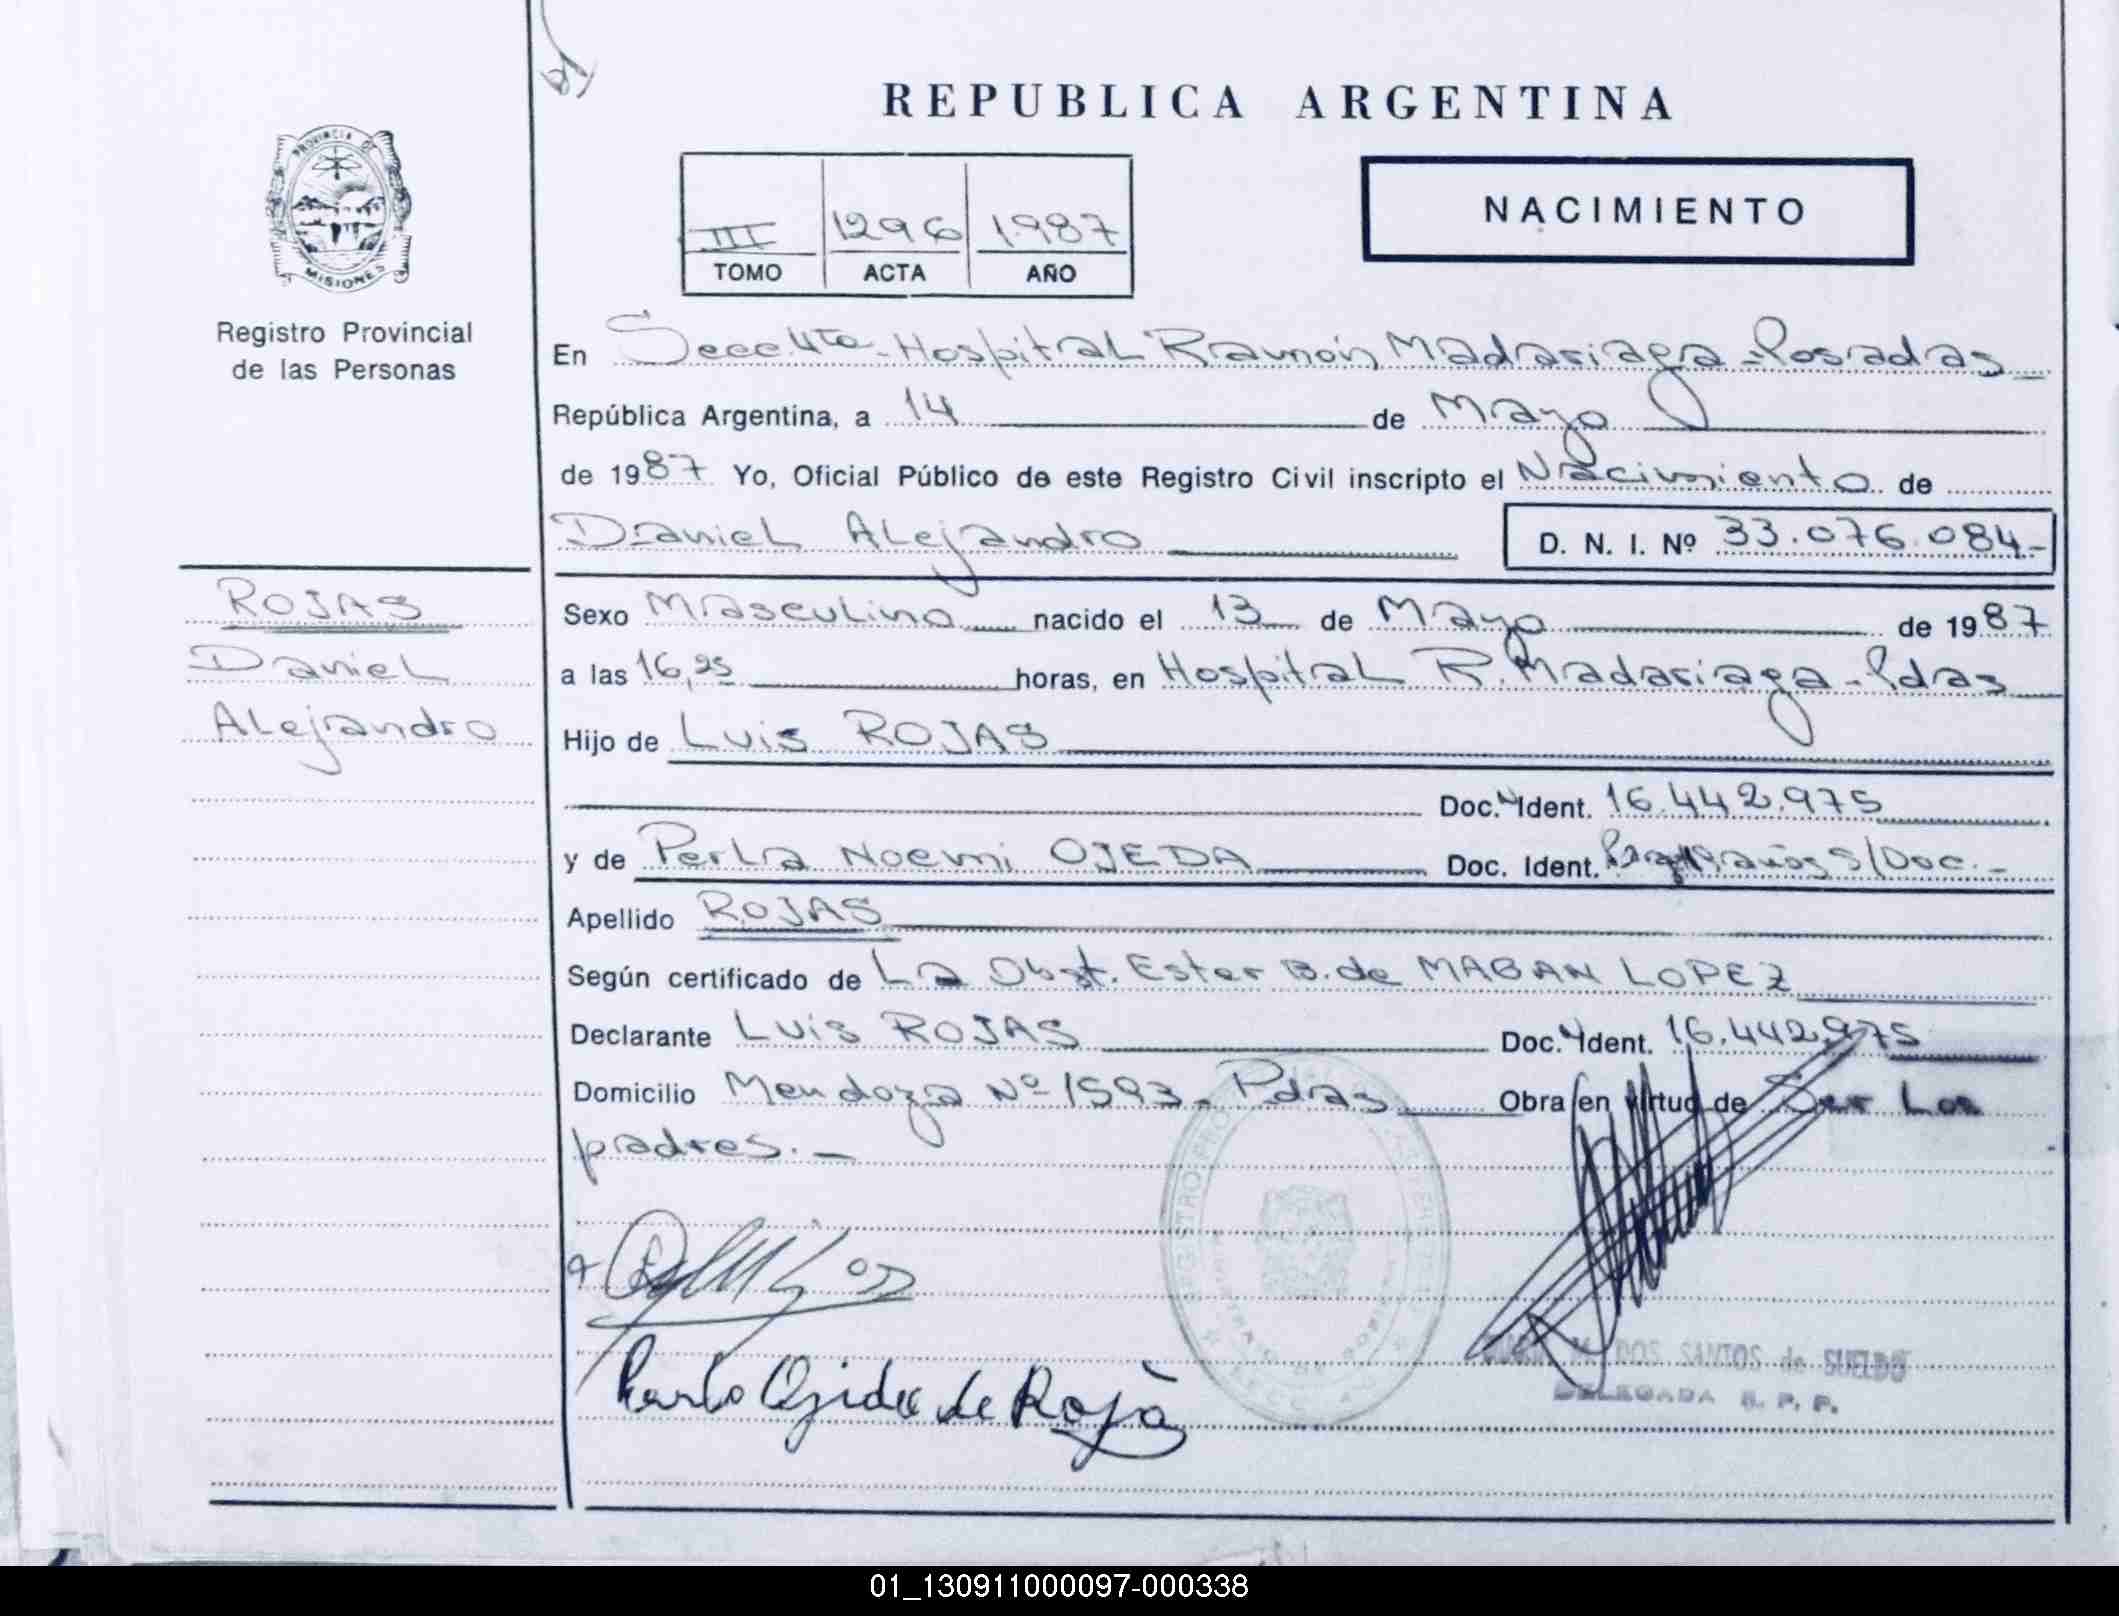 REPUBLICA ARGENTINA
PROVINCIA DE
MISIONES
Registro Provincial
de las Personas
III 1296 1987
TOMO ACTA AÑO
NACIMIENTO
En Secc. 4ta. Hospital Ramón Madariaga - Posadas
República Argentina, a 14 de Mayo
de 1987 Yo, Oficial Público de este Registro Civil inscripto el Nacimiento de
Daniel Alejandro D. N. I. Nº 33.076.084-
ROJAS
Daniel
Alejandro
Sexo Masculino nacido el 13 de Mayo de 1987
a las 16,25 horas, en Hospital R. Madariaga - Pdas
Hijo de Luis ROJAS
Doc. Ident. 16.442.975
y de Perla Noemi OJEDA Doc. Ident. S/Doc.-
Apellido ROJAS
Según certificado de La Obst. Ester B. de MABAN LOPEZ
Declarante Luis ROJAS Doc. Ident. 16.442.975
Domicilio Mendoza Nº 1593. Pdas Obra en virtud de Ser Los
padres.-
Perla Ojeda de Roja
DOS SANTOS de SUELDO
DELEGADA R. P. P.
01_130911000097-000338